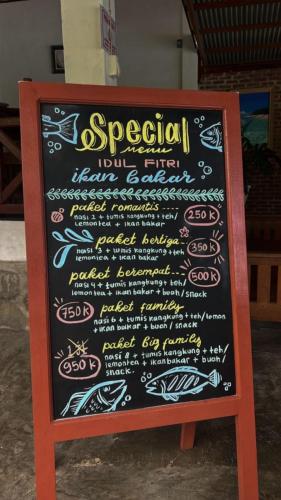 Special
menu
IDUL FITRI
ikan bakar
paket romantis....
nasi 2 + tumis kangkung + teh/
lemontea + ikan bakar
250 K
paket bertiga..
nasi 3 + tumis kangkung + teh/
lemontea + ikan bakar
350 K
paket berempat...
nasi 4 + tumis kangkung + teh/
lemontea + ikan bakar + buah / snack
500 K
750 K
paket family
nasi 6 + tumis kangkung + teh/ lemon
+ ikan bakar + buah / snack
950 K
paket Big family
nasi 8 + tumis kangkung + teh/
lemontea + ikan bakar + buah /
snack.